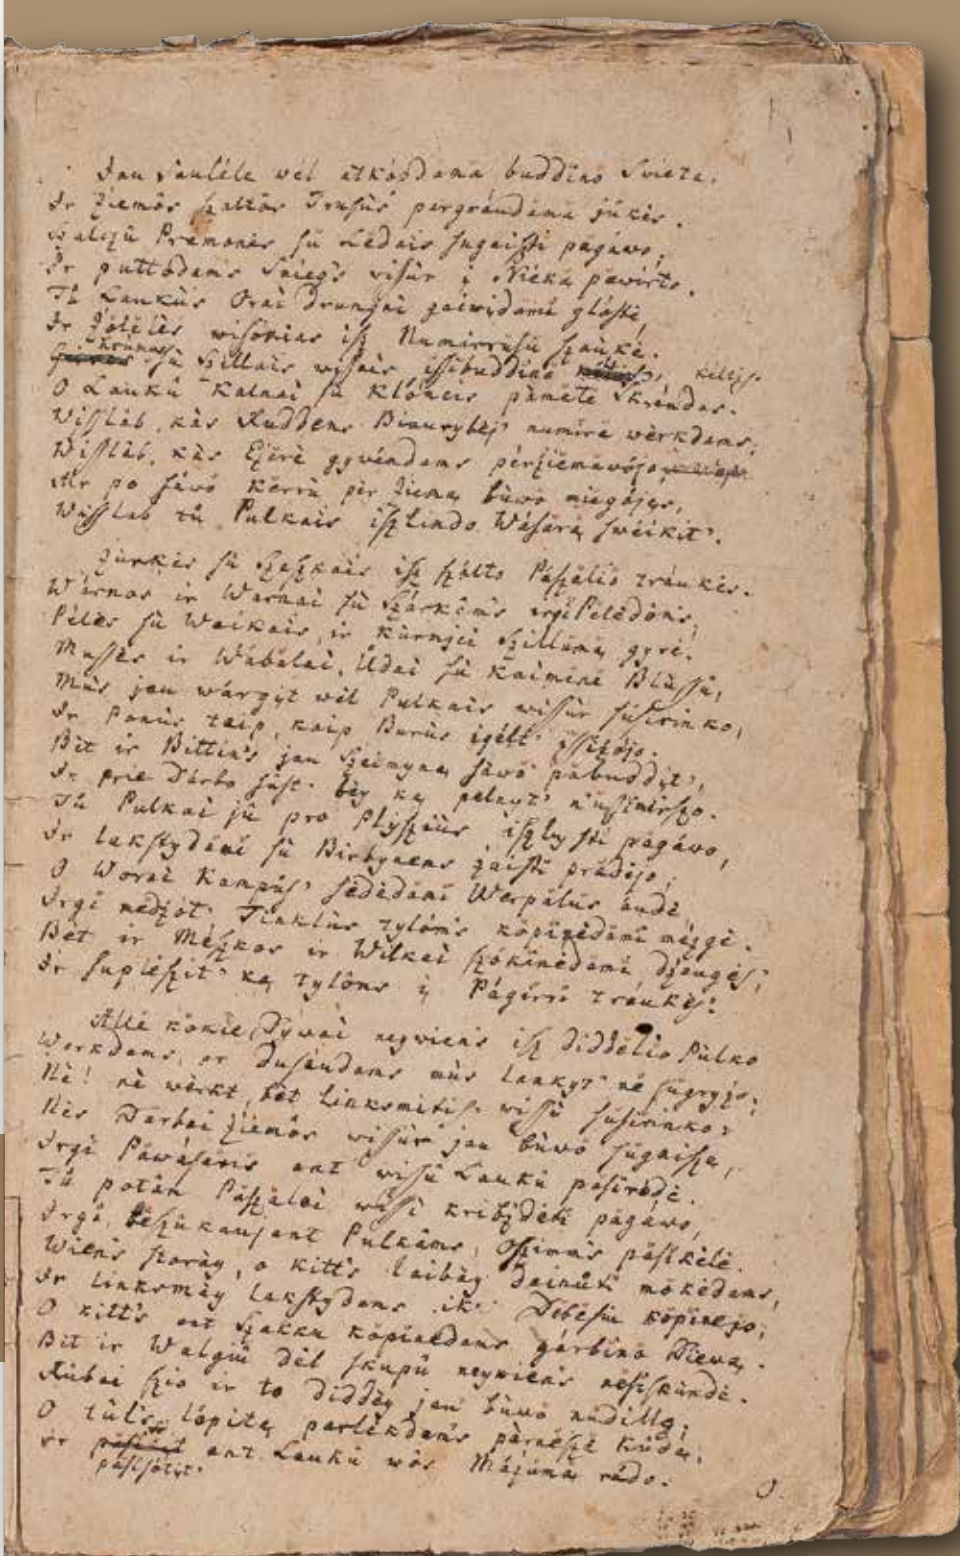 Jau Sauléle wėl atkópdama buddino Swietą.
Ir Źiemôs ßaltôs Trusùs pargráudama jůkės.
Szalczû Prámonės sù Lẻdais sugaißti pagáwo;
Ir puttódams Sniẻg's wissur į Nieką pawirto.
Tů Laukùs Orai drungni gaiwįdami glóstė,
Ir Żoleles wisókias iß Numirrusû ßaukė.
Krúmus sù Szillais wissais issibuddino keltis.
O Laukû Kalnai sù Klóneis pametė Skrandas.
Wislab, kas Ruddens Biaurybėj' numirė werkdams;
Wislab, kas Eżere gywendams perżiemawojo,
Ar po sawo Kerru per Żiemą buwo miegojęs,
Wislab tů Pulkais ißlindo Wasarą sweikįt'.
Żurkės sù Szeßkais iß ßalto Paßalio traukės.
Warnos ir Warnai sù Szárkoms irgi Peledoms,
Pelės sù Waikais ir Kurmjei Szillumą gyrė.
Mussės ir Wabalai, Ůdai sù Kaimene Blussû,
Mus jau wargįt wėl Pulkais wissur susirinko,
Ir Ponùs taip, kaip Burùs įgelt' issiżojo.
Bet ir Bittin's jau Szeimyną sawo pabuddįt',
Ir prie Darbo sust' bey ką pelnyt' n'ußmirßo.
Tů Pulkai jû pro Plyßius ißlįsti pagawo,
Ir lakstydami sù Birbynėms żaisti pradėjo;
O Worai Kampůs' sėdėdami Werpalus audė,
Irgi medżot' Tinklùs tyloms kopinėdami mezgė.
Bet ir Meßkos ir Wilkai ßokinėdami dżaugės;
Ir suplėßit' ką tyloms į Págirrį traukės.
Allė kokie Dywai neywiens iß diddelio Pulko
Werkdams, ar dusaudams mus lankyt' nė sugryżo;
Nė! nė werkt, bet linksmįtis wissi susirinko:
Nės Darbai Źiemôs wissur jau buwo sugaißę,
Irgi Pawasaris ant wissû Laukû pasirodė.
Tů potam Paßalei wissi kribżdėti pagawo,
Irgi beßukaujant Pulkams, Oßims pasikėlė.
Wiens storay, o kitt's laibay dainůti mokėdams,
Ir linksmay lakstydams iki Debesiû kopinėjo;
O kitt's ant Szakkû kopinėdams garbino Diewą.
Bet ir Walgiû dėl skupû neywiens nesiskundė.
Rubai ßio ir to didday jau buwo nudillę;
O tul's lopįtą parlėkdams parneßė Kudą;
ir pasisotįt' ant Laukû wos Májumą rado.
O